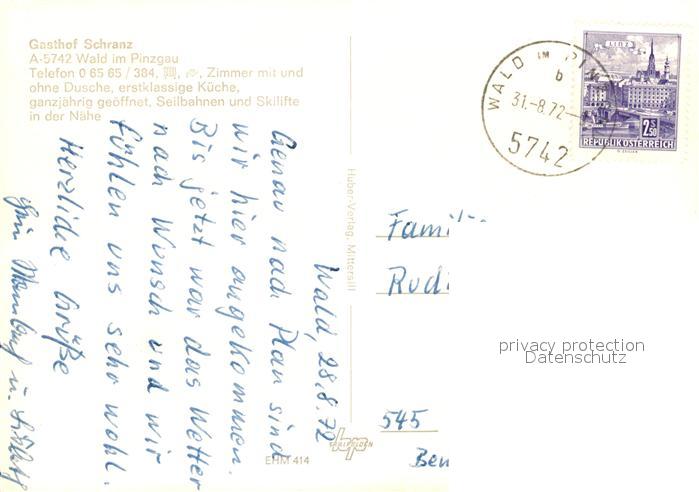 Gasthof Schranz
A-5742 Wald im Pinzgau
Telefon 0 65 65 / 384, Zimmer mit und
ohne Dusche, erstklassige Küche,
ganzjährig geöffnet, Seilbahnen und Skilifte
in der Nähe
Wald, 28.8.72
Genau nach Plan sind
wir hier angekommen.
Bis jetzt war das Wetter
nach Wunsch und wir
fühlen uns sehr wohl.
Herzliche Grüße
u.
Huber-Verlag, Mittersill
EHM 414
WALD IM PINZ
b
31.-8.72
5742
LINZ
2.50
REPUBLIK ÖSTERREICH
Famil
Rudi
privacy protection
Datenschutz
545
Ben